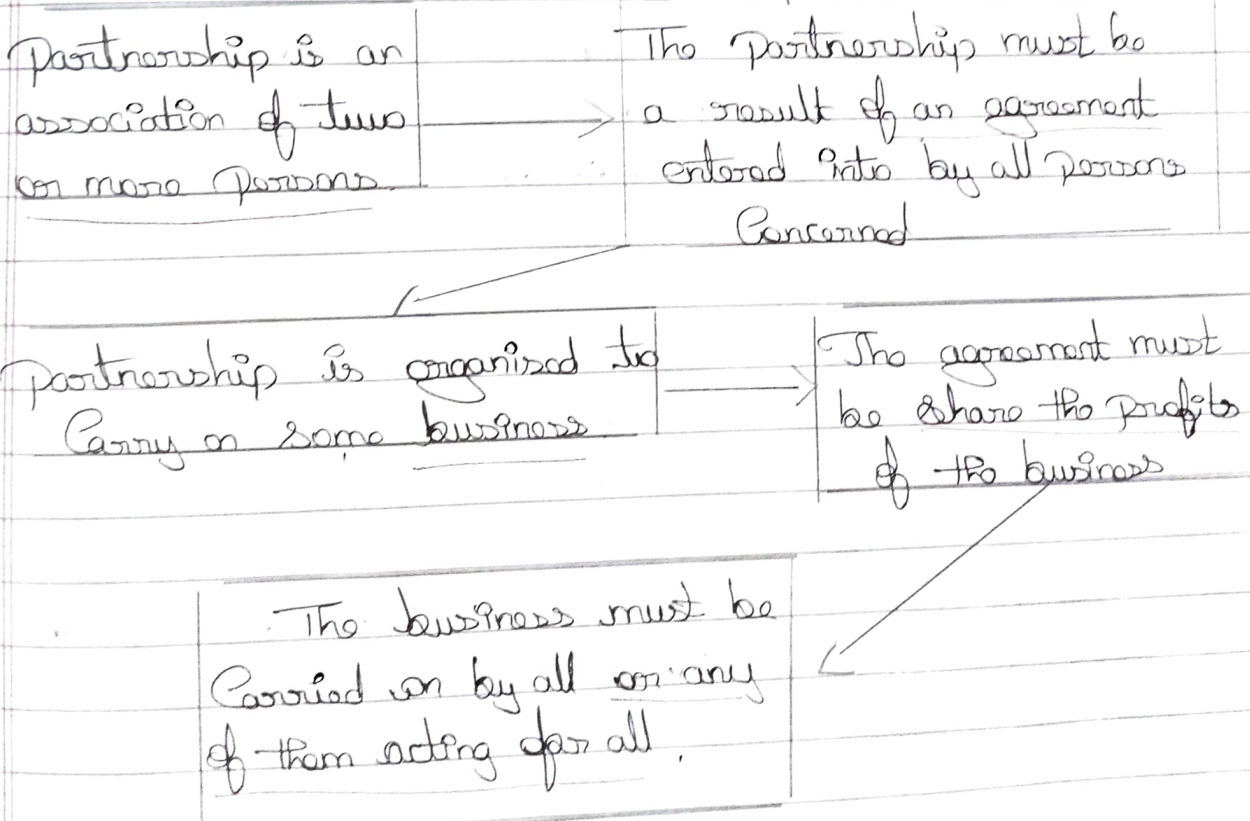 Partnership is an
association of two
or more Persons.
The Partnership must be
a result of an agreement
entered into by all persons
Concerned
partnership is organised to
Carry on some business
The agreement must
be share the profits
of the business
The business must be
Carried on by all or any
of them acting for all.